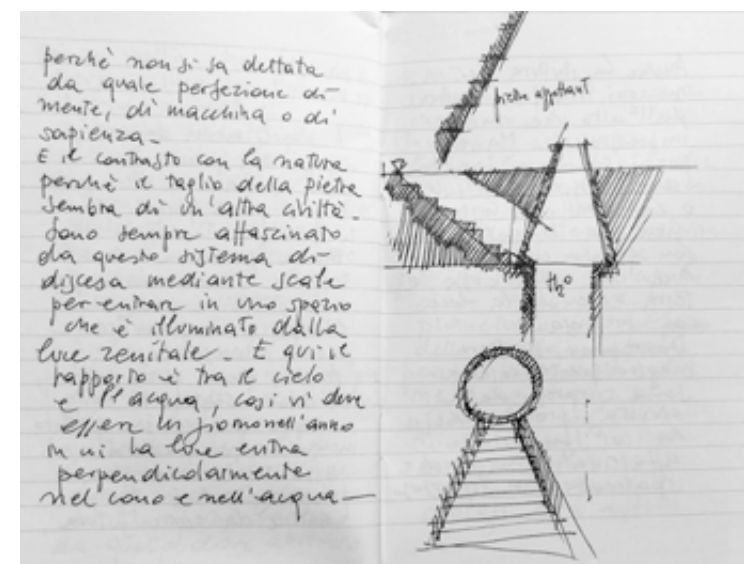 perchè non si sa dettata
da quale perfezione di
mente, di macchina o di
sapienza_
E il contrasto con la natura
perchè il taglio della pietra
sembra di un'altra civiltà_
Sono sempre affascinato
da questo sistema di
discesa mediante scale
per entrare in uno spazio
che è illuminato dalla
luce zenitale_ E qui il
rapporto è tra il cielo
e l'acqua, così vi deve
essere un giorno nell'anno
in cui la luce entra
perpendicolarmente
nel cono e nell'acqua_
pietre aggettanti
H2O